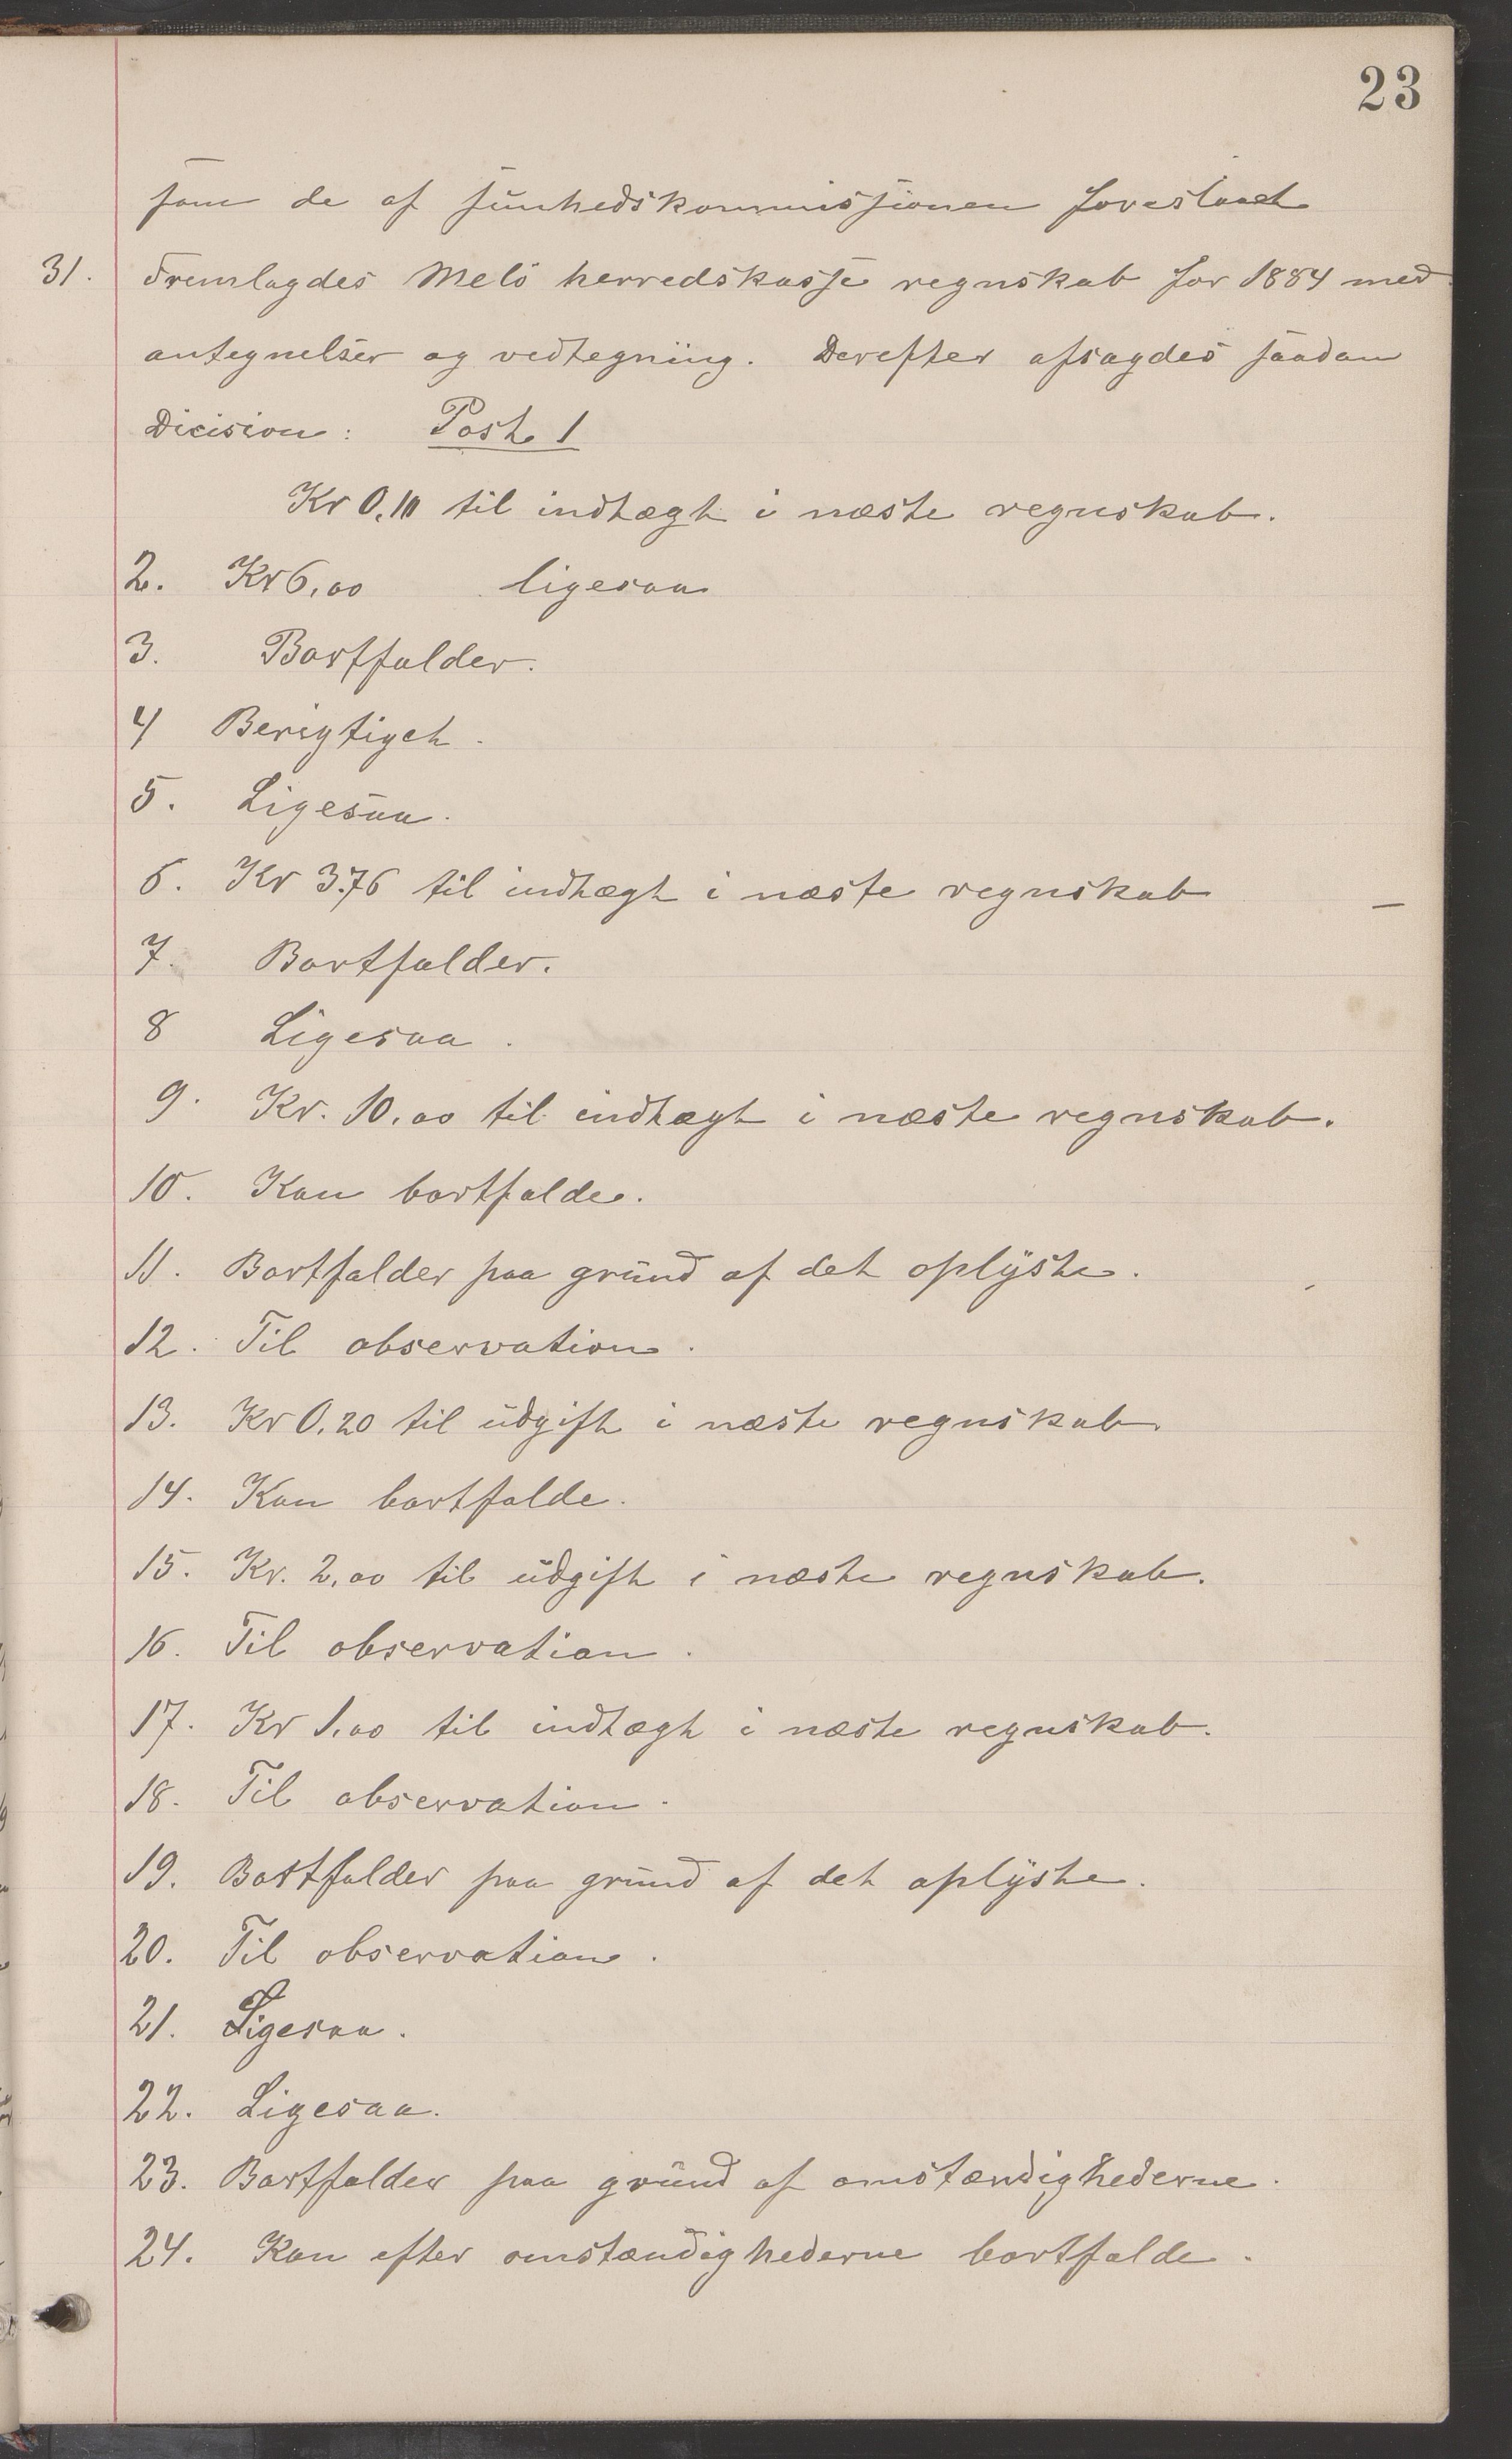 23
som de af sunhedskommissionen foreslaaet
31. Fremlagdes Melö herredskasse regnskab for 1884 med
antegnelser og vedtegning. Derefter afsagdes saadan
Dicision: Post 1
Kr 0,10 til indtægt i næste regnskab.
2. Kr 6,00 ligesaa
3. Bortfalder.
4 Berigtiget.
5. Ligesaa.
6. Kr 3.76 til indtægt i næste regnskab
7. Bortfalder.
8 Ligesaa.
9. Kr. 10,00 til indtægt i næste regnskab.
10. Kan bortfalde.
11. Bortfalder paa grund af det oplyste.
12. Til observation.
13. Kr 0,20 til udgift i næste regnskab.
14. Kan bortfalde.
15. Kr. 2,00 til udgift i næste regnskab.
16. Til observation.
17. Kr 1,00 til indtægt i næste regnskab.
18. Til observation.
19. Bortfalder paa grund af det oplyste.
20. Til observation.
21. Ligesaa.
22. Ligesaa.
23. Bortfalder paa grund af omstændighederne.
24. Kan efter omstændighederne bortfalde.